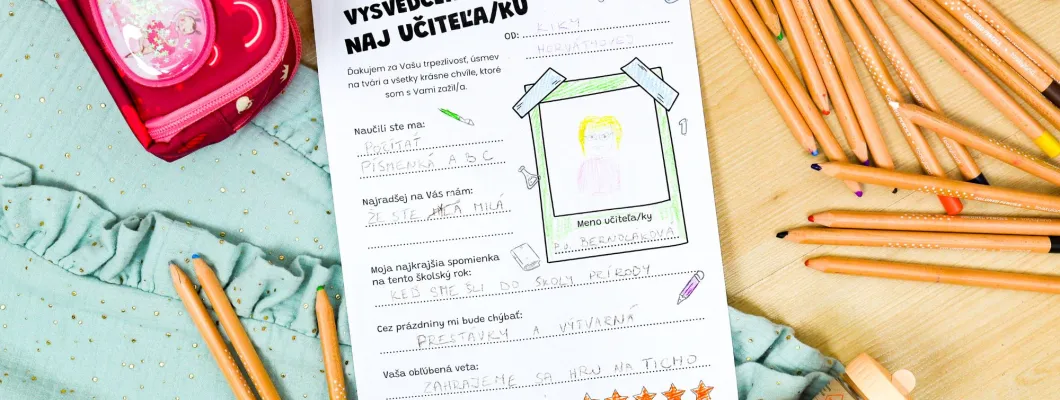 NAJ UČITEĽA/KU
OD: KIKY
HORVÁTHOVEJ
Ďakujem za Vašu trpezlivosť, úsmev
na tvári a všetky krásne chvíle, ktoré
som s Vami zažil/a.
Naučili ste ma:
POČÍTAŤ
PÍSMENKÁ A B C
Najradšej na Vás mám:
ŽE STE MILÁ
Meno učiteľa/ky
P.U. BERNOLÁKOVÁ
Moja najkrajšia spomienka
na tento školský rok:
KEĎ SME ŠLI DO ŠKOLY PRÍRODY
Cez prázdniny mi bude chýbať:
PRESTÁVKY A VÝTVARNÁ
Vaša obľúbená veta:
ZAHRAJEME SA HRU NA TICHO